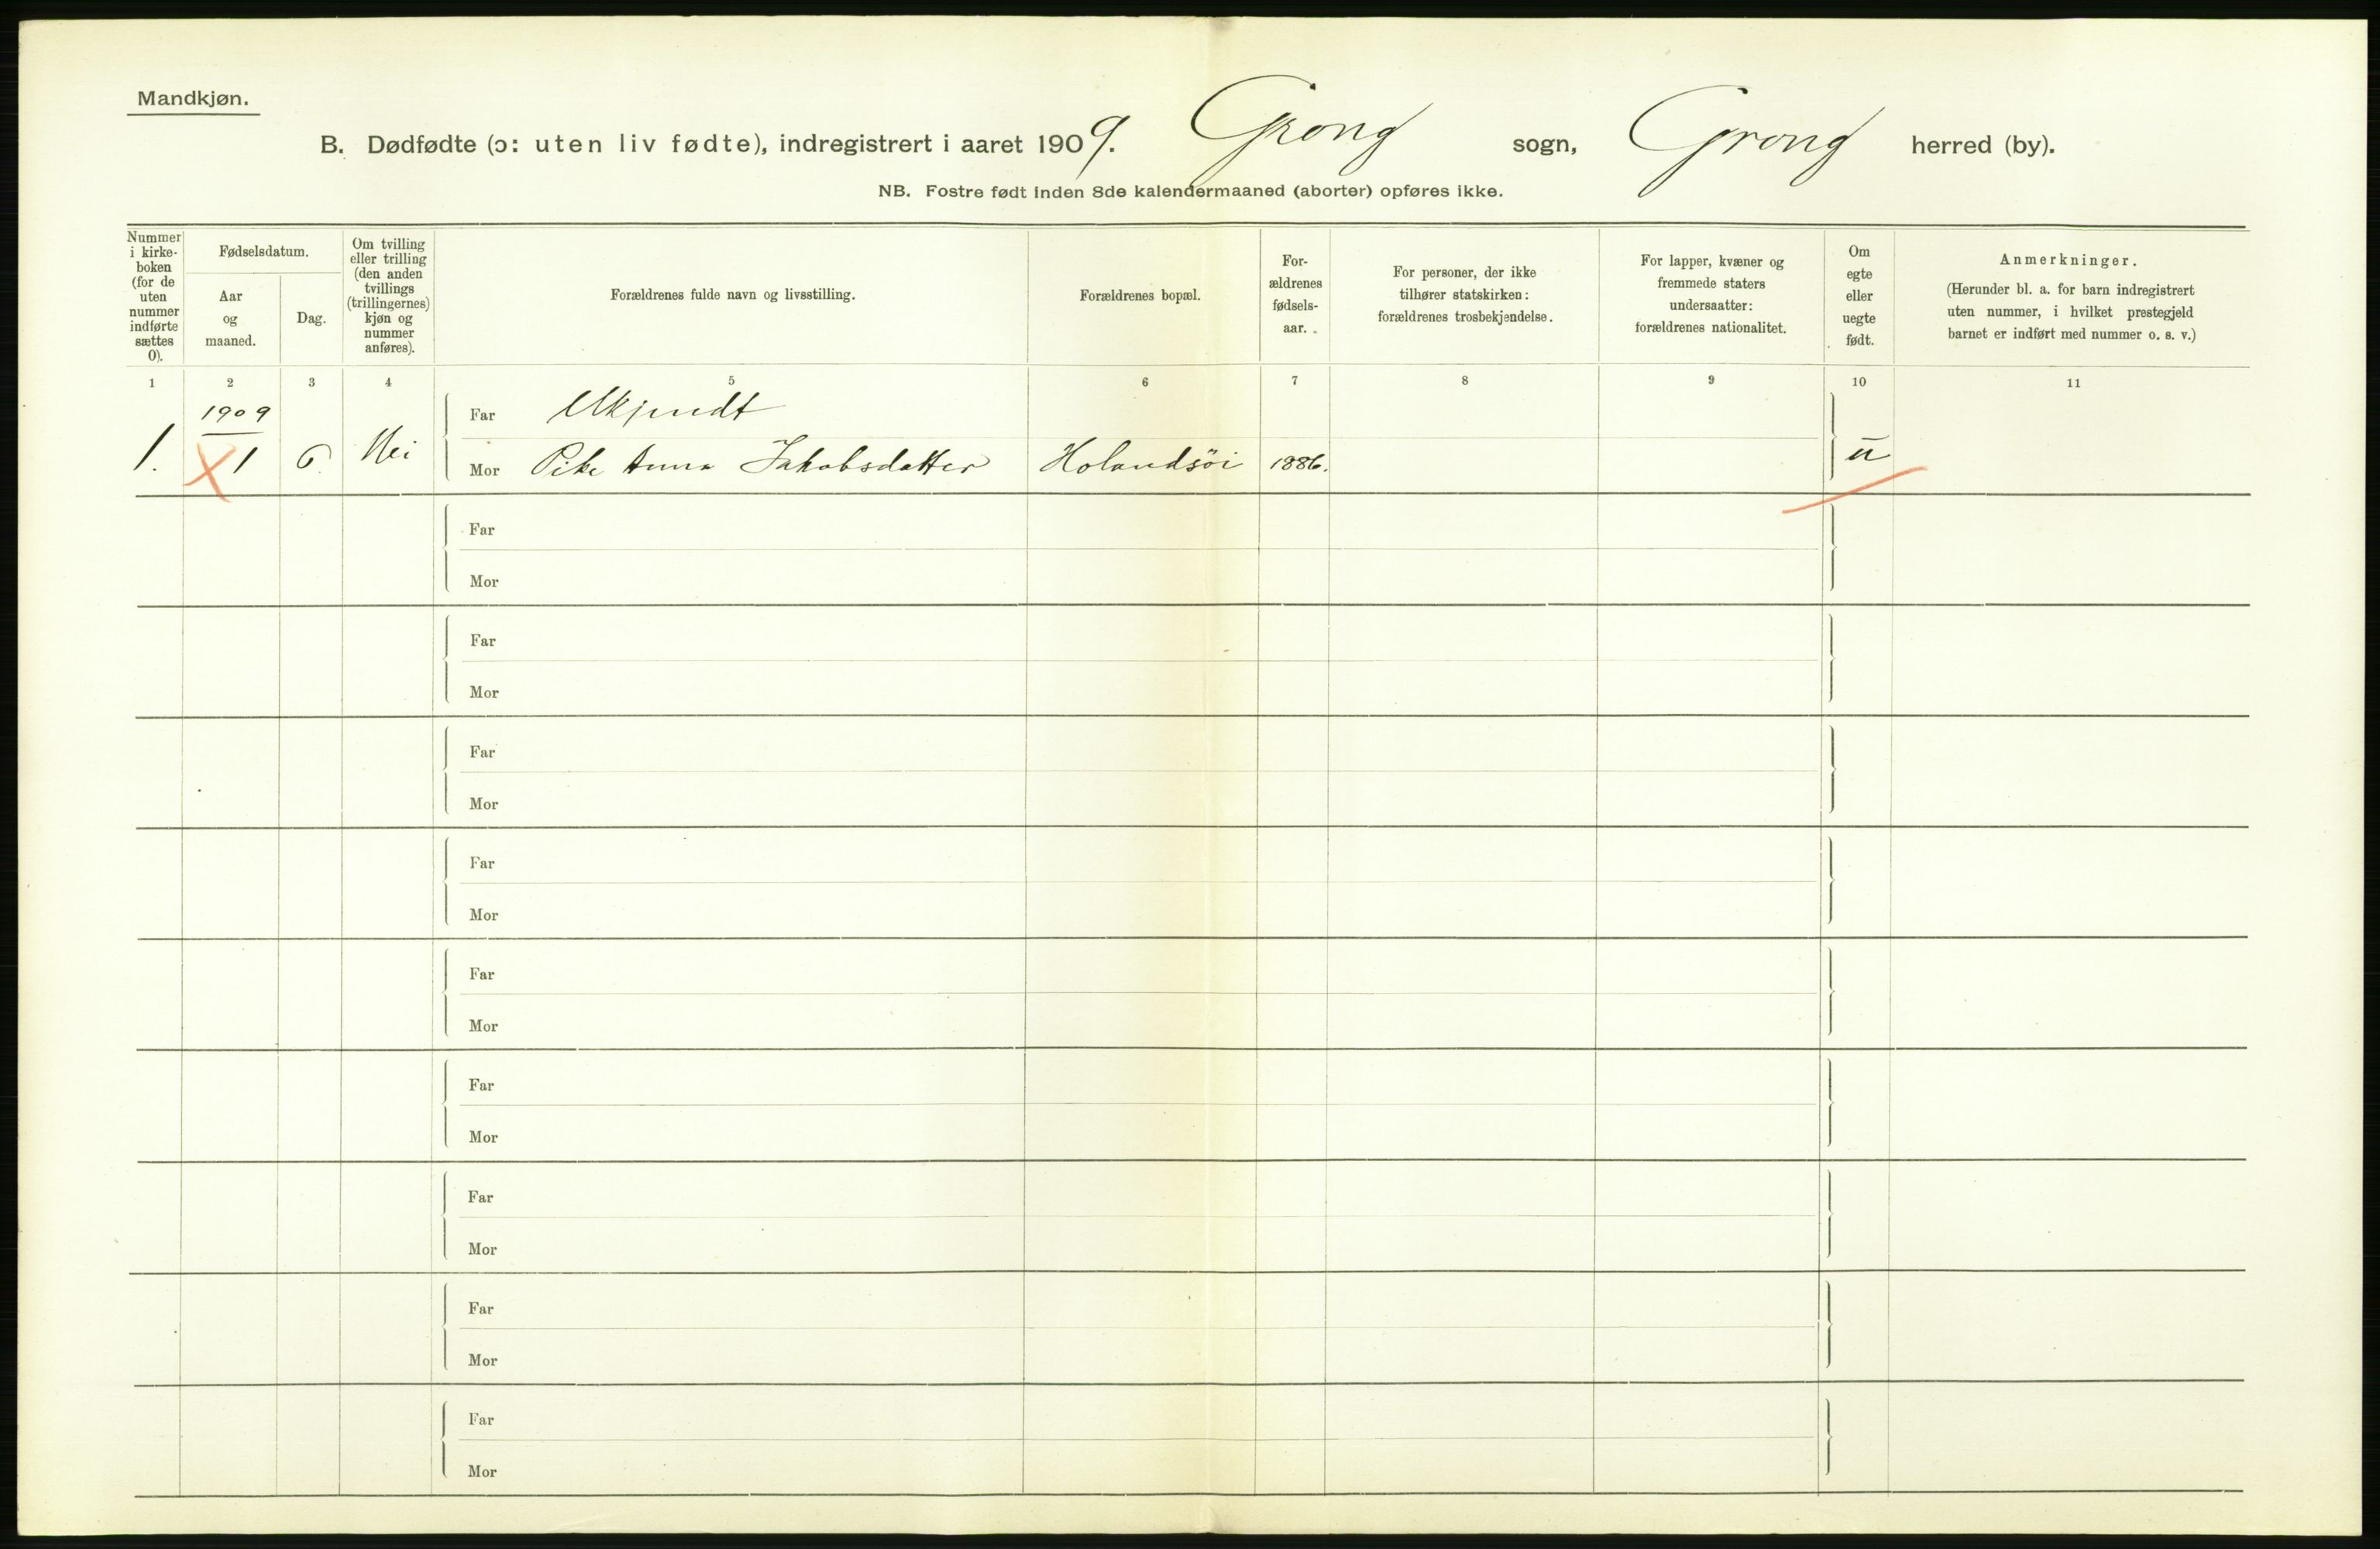 Mandkjøn.
B. Dødfødte (ɔ: uten liv fødte), indregistrert i aaret 1909. Grong sogn, Grong herred (by).
NB. Fostre født inden 8de kalendermaaned (aborter) opføres ikke.
Nummer
i kirke-
boken
(for de
uten
nummer
indførte
sættes
0).
Fødselsdatum.
Aar
og
maaned.
Dag.
Om tvilling
eller trilling
(den anden
tvillings
(trillingernes)
kjøn og
nummer
anføres).
Forældrenes fulde navn og livsstilling.
Forældrenes bopæl.
For-
ældrenes
fødsels-
aar.
For personer, der ikke
tilhører statskirken:
forældrenes trosbekjendelse.
For lapper, kvæner og
fremmede staters
undersaatter:
forældrenes nationalitet.
Om
egte
eller
uegte
født.
Anmerkninger.
(Herunder bl. a. for barn indregistrert
uten nummer, i hvilket prestegjeld
barnet er indført med nummer o. s. v.)
1 2 3 4 5 6 7 8 9 10 11
1909
Far Ukjendt
1. 1 6. Nei Mor Pike Anna Jakobsdatter Holandsöi 1886. u
Far
Mor
Far
Mor
Far
Mor
Far
Mor
Far
Mor
Far
Mor
Far
Mor
Far
Mor
Far
Mor